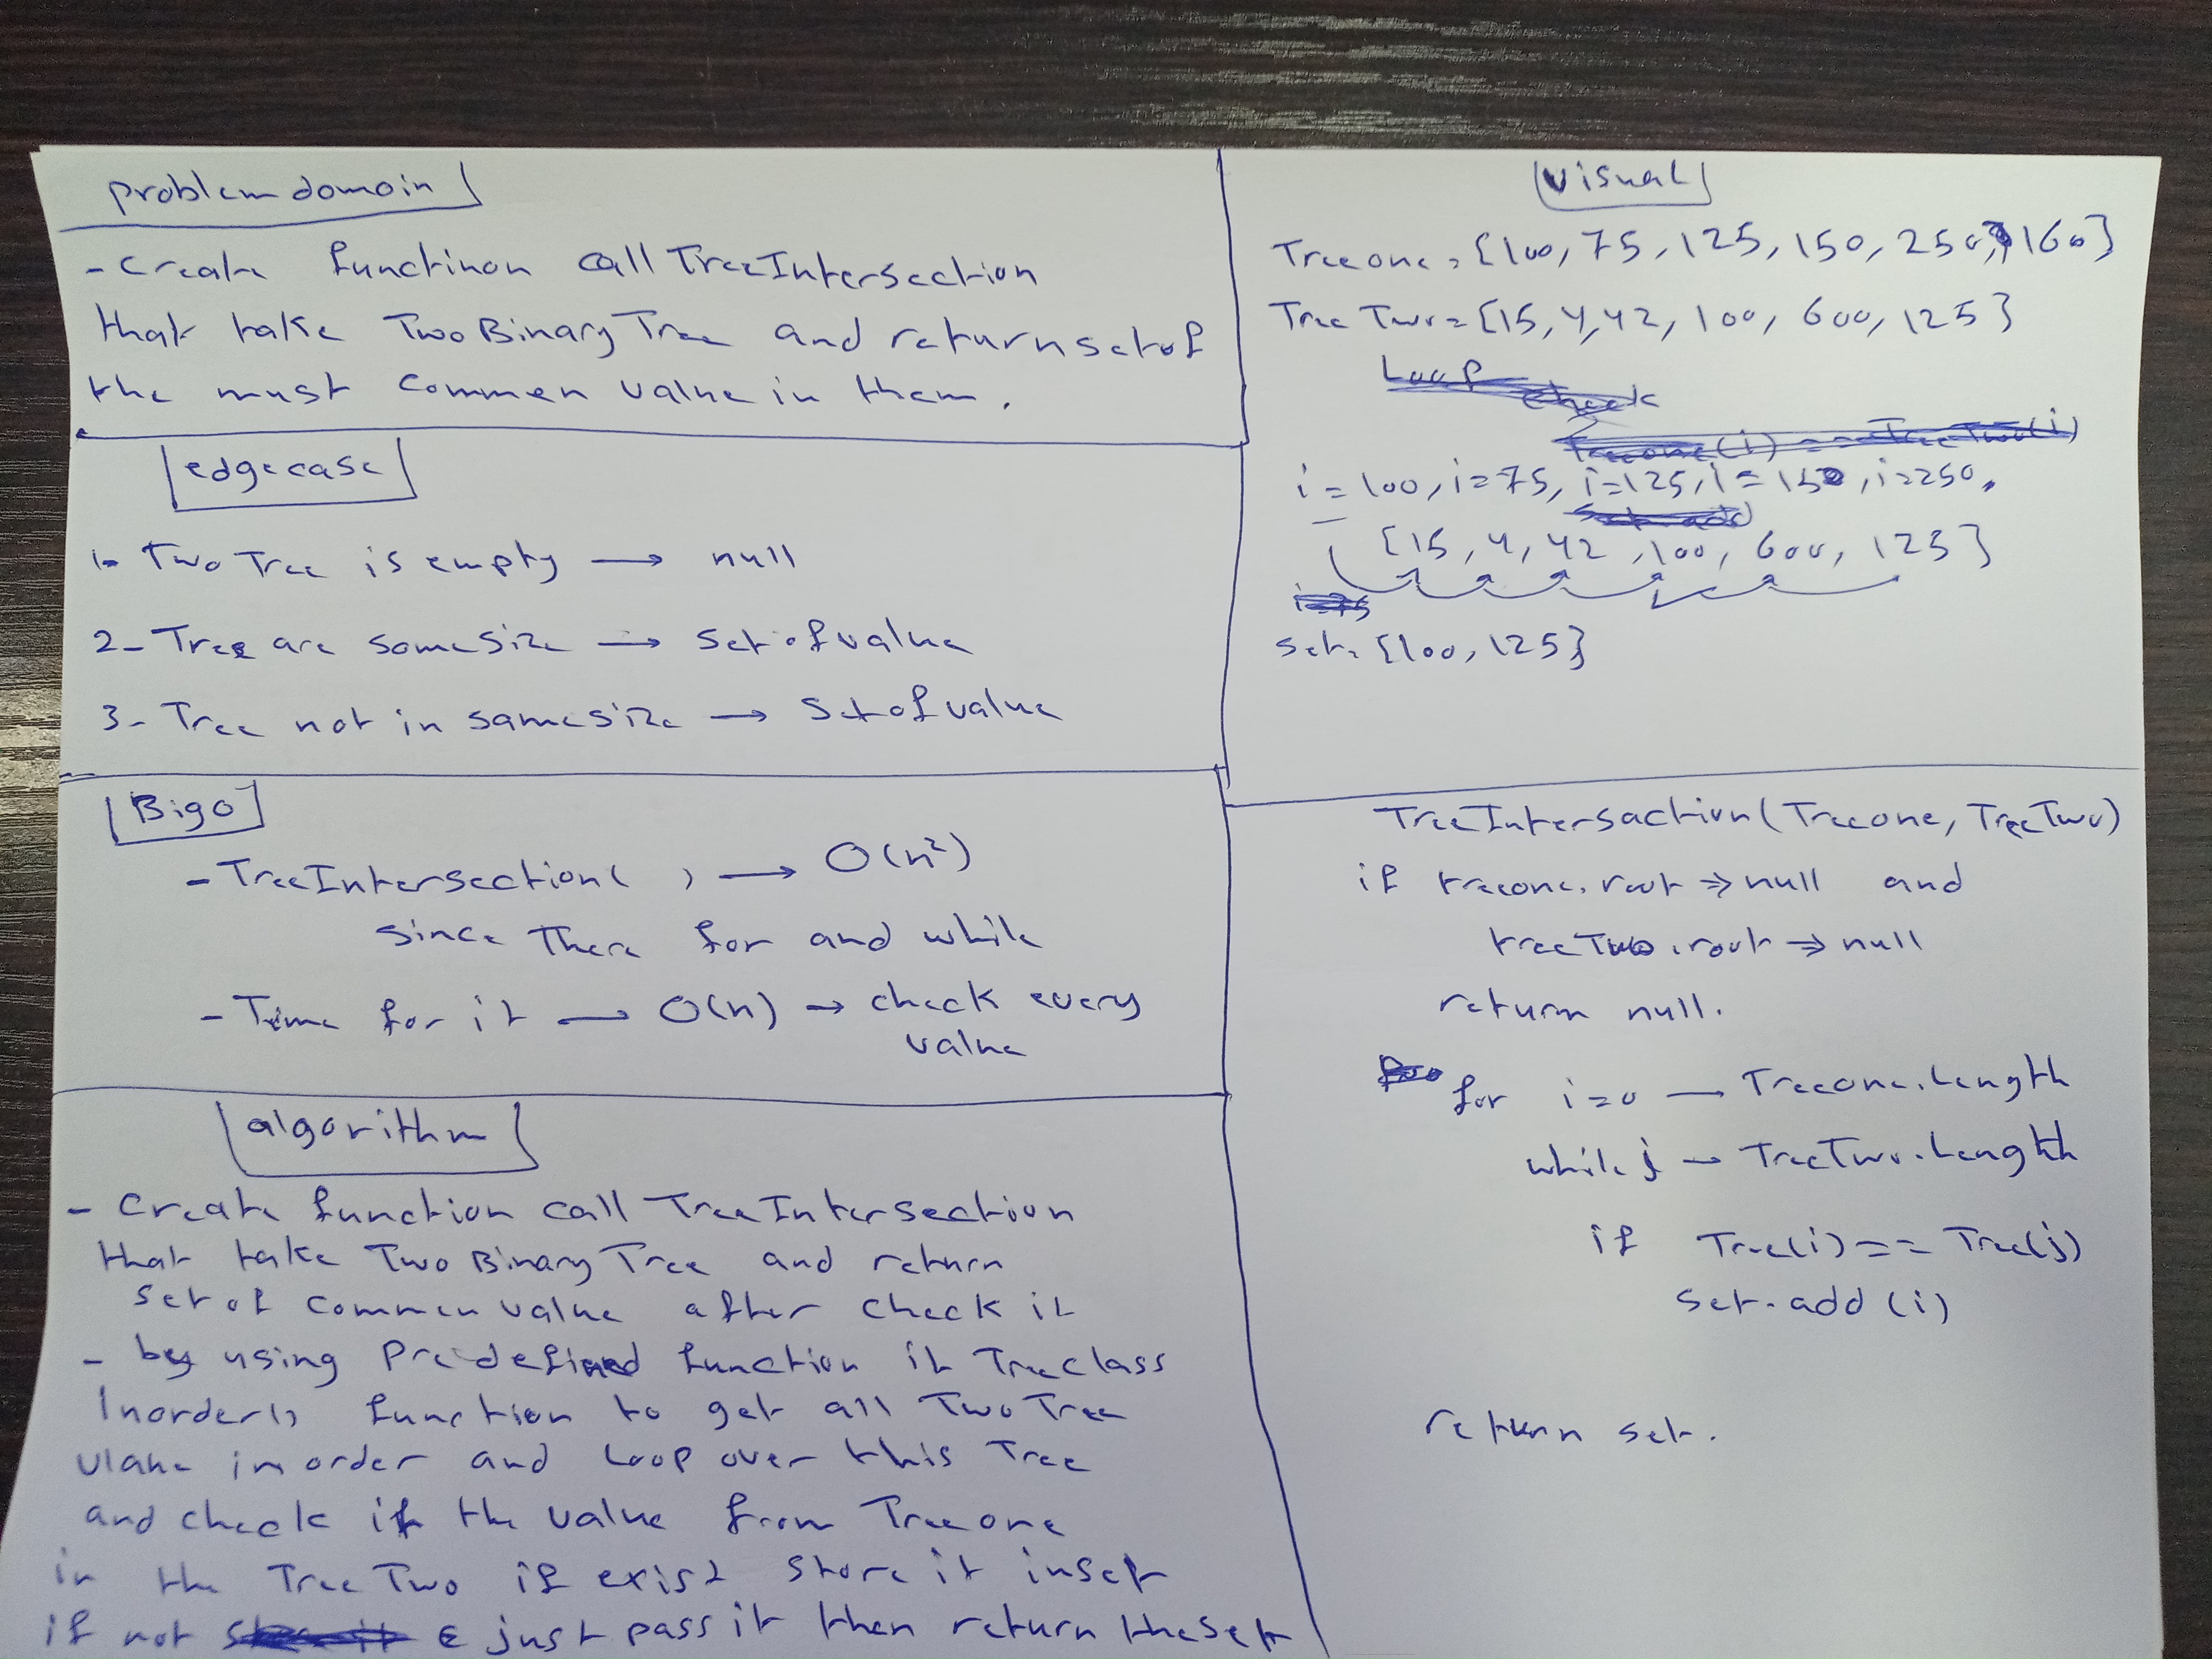 problem domoin
- Create functinon call TreeIntersection
that take Two Binary Tree and return set of
the must commen value in them.
edge case
1- Two Tree is empty → null
2- Tree are same size → set of value
3- Tree not in same size → set of value
Big O
- TreeIntersection( ) → O(n²)
since There for and while
- Time for it → O(n) → check every
value
algorithm
- Create function call Tree Intersection
that take Two Binary Tree and return
set of commen value after check it
- by using Pre defined function it Tree class
Inorder() function to get all Two Tree
vlaue in order and Loop over this Tree
and check if the value from Tree one
in the Tree Two if exist store it in set
if not just pass it then return the set
Visual
Tree one = {100, 75, 125, 150, 250, 160}
Tree Two = {15, 4, 42, 100, 600, 125}
Loop
check
Treeone(i) == TreeTwo(i)
i = 100, i = 75, i = 125, i = 150, i = 250,
set.add
{15, 4, 42, 100, 600, 125}
i=75
set = {100, 125}
TreeIntersaction(Treeone, TreeTwo)
if treeone.root ⇒ null and
treeTwo.root ⇒ null
return null.
for i=0 → Treeone.Length
while j → TreeTwo.Length
if Tree(i) == Tree(j)
set.add (i)
return set.